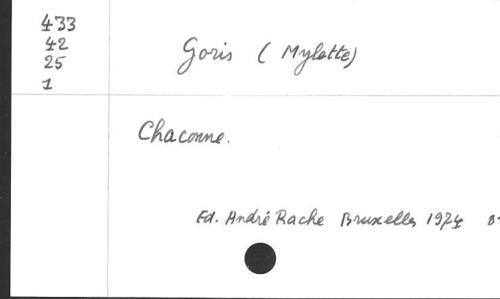 433
42
25
1
Goris (Mylette)
Chaconne.
Ed. André Rache Bruxelles 1974